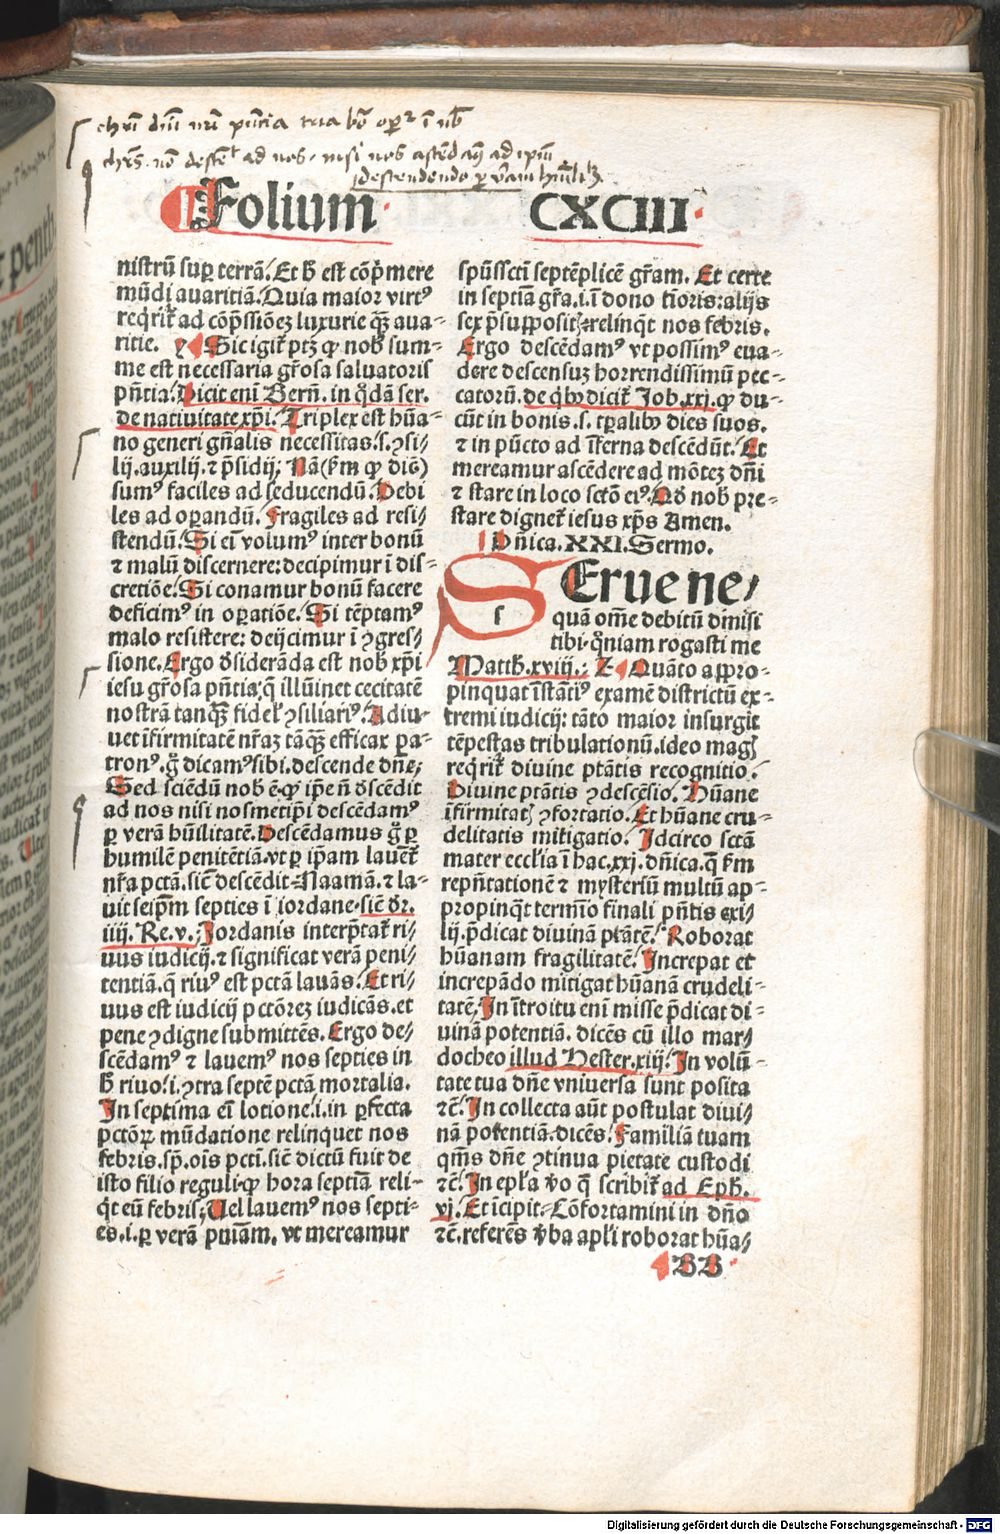 Folium CXCIII
nistrū sup̱ terrā. Et h̄ est cōp̄mere
mūdi auaritiā. Quia maior virtꝰ
reqrit̄ ad cōp̄ssiōeꝫ luxurie q̄ꝫ aua-
ritie. Sic igit̄ ptꝫ ꝙ nob̄ sum-
me est necessaria gr̄osa saluatoris
pn̄tia. Dicit eni Bern̄. in q̊dā ser.
de natiuitate xp̄i. Triplex est hūa-
no generi gn̄alis necessitas. s. ꝯsi-
lij. auxilij. ⁊ p̄sidij. Nā
sumꝰ faciles ad seducendū. Debi
les ad op̱andū. Fragiles ad resi/
stendū. Si ei volumꝰ inter bonū
⁊ malū discernere: decipimur ī dis-
cretiōe. Si conamur bonū facere
deficimꝰ in op̱atiōe. Si tēptamꝰ
malo resistere: deijcimur ī ꝯgres-/
sione. Ergo d̓siderāda est nob̄ xp̄i
iesu gr̄osa pn̄tia: q̄ illūinet cecitatē
nostrā tanq̄ꝫ fidel̓ ꝯsiliariꝰ. Adiu-
uet īfirmitatē nr̄aꝫ tāq̄ꝫ efficax pa-
tronꝰ. g̊ dicamꝰ sibi. descende dn̄e/
Sed sciendū nob̄ ē. ꝙ ip̄e n̄ d̓scēdit
ad nos nisi nosmetip̄i descēdamꝰ
p̱ verā hūilitatē. Descēdamus g̊ p̱
humilē penitētiā. vt p̱ ip̄am lauet̄
nr̄a pctā. sic̄ descēdit Naamā. ⁊ la-
uit seip̄m septies ī iordane. sic̄ dr̄.
iiij. Re. v. Jordanis interp̄tat̄ ri/
uus iudicij. ⁊ significat verā peni/
tentiā. q̄ riuꝰ est pctā lauās. Et ri/
uus est iudicij pctōreꝫ iudicās. et
pene ꝯdigne submittēs. Ergo de-/
scēdamꝰ ⁊ lauemꝰ nos septies in
h̄ riuo. i. ꝯtra septē pctā mortalia.
In septima ei lotione. i. in p̱fecta
pctōꝝ mūdatione relinquet nos
febris. sp̄. oīs pcti. sic̄ dictū fuit de
isto filio reguli. ꝙ hora septiā reli-
q̇t eū febris. Uel lauemꝰ nos septi-
es. i. p̱ verā pniam. vt mereamur
spūssctī septēplicē gr̄am. Et certe
in septīa gr̄a. i. ī dono tīoris: alijs
sex p̄suppositꝭ relinq̇t nos febris.
Ergo descēdamꝰ vt possimꝰ eua-
dere descensuꝫ horrendissimū pec-
catorū. de qb̓ dicit̄ Job. xxj. ꝙ du-
cūt in bonis. s. tp̱alib̓ dies suos.
⁊ in pūcto ad īferna descēdūt. Et
mereamur ascēdere ad mōteꝫ dn̄i
⁊ stare in loco sctō eiꝰ. Qd̓ nob̄ pre-
stare dignet̄ iesus xp̄s Amen.
Dn̄ica. XXI. Sermo.
SErue ne/
quā om̄e debitū dimisi
tibi. qm̄iam rogasti me
Matth. xviij. Quāto appro-
pinquat īstātiꝰ examē districtū ex-
tremi iudicij: tāto maior insurgit
tēpestas tribulationū. ideo magꝭ
reqrit̄ diuine ptātis recognitio.
Diuine ptātis ꝯdescēsio. Hūane
īfirmitatꝭ ꝯfortatio. Et hūane cru-
delitatis mitigatio. Idcirco sctā
mater ecclia ī hac. xxj. dn̄ica. q̄ fm
repn̄tationē ⁊ mysteriū multū ap-
propinq̇t termīo finali pn̄tis exi-/
lij. p̄dicat diuinā ptātē. Roborat
hūanam fragilitatē. Increpat et
increpādo mitigat hūanā crudeli-
tatē. In ītroitu eni misse p̄dicat di-
uinā potentiā. dicēs cū illo mar/
docheo illud Hester. xiij. In volū-
tate tua dn̄e vniuersa sunt posita
⁊c̄. In collecta aūt postulat diui/
nā potentiā. dicēs. Familiā tuam
qm̄s dn̄e ꝯtinua pietate custodi
⁊c̄. In epl̓a v̓o q̄ scribit̄ ad Eph.
vj. Et īcipit. Cōfortamini in dn̄o
⁊c̄. referēs v̓ba apl̓i roborat hūa/
BB
Digitalisierung gefördert durch die Deutsche Forschungsgemeinschaft - DFG